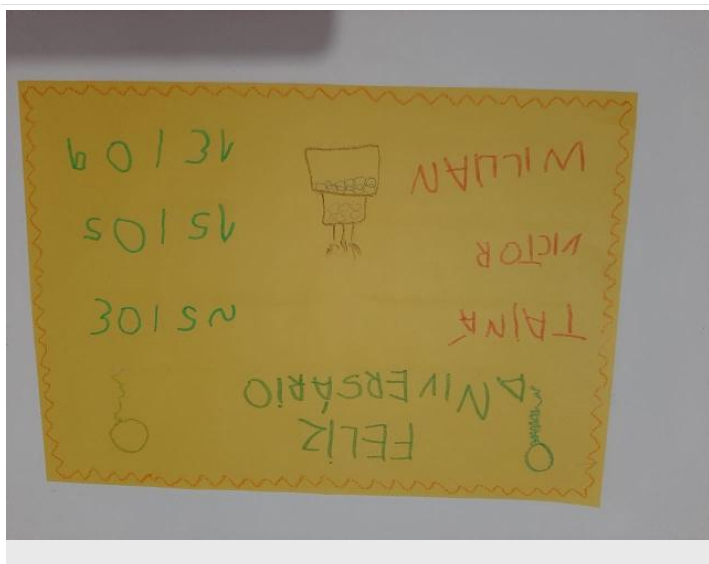 FELIZ
ANIVERSÁRIO
TAINÁ 25/03
VICTOR 15/05
WILLIAN 13/09